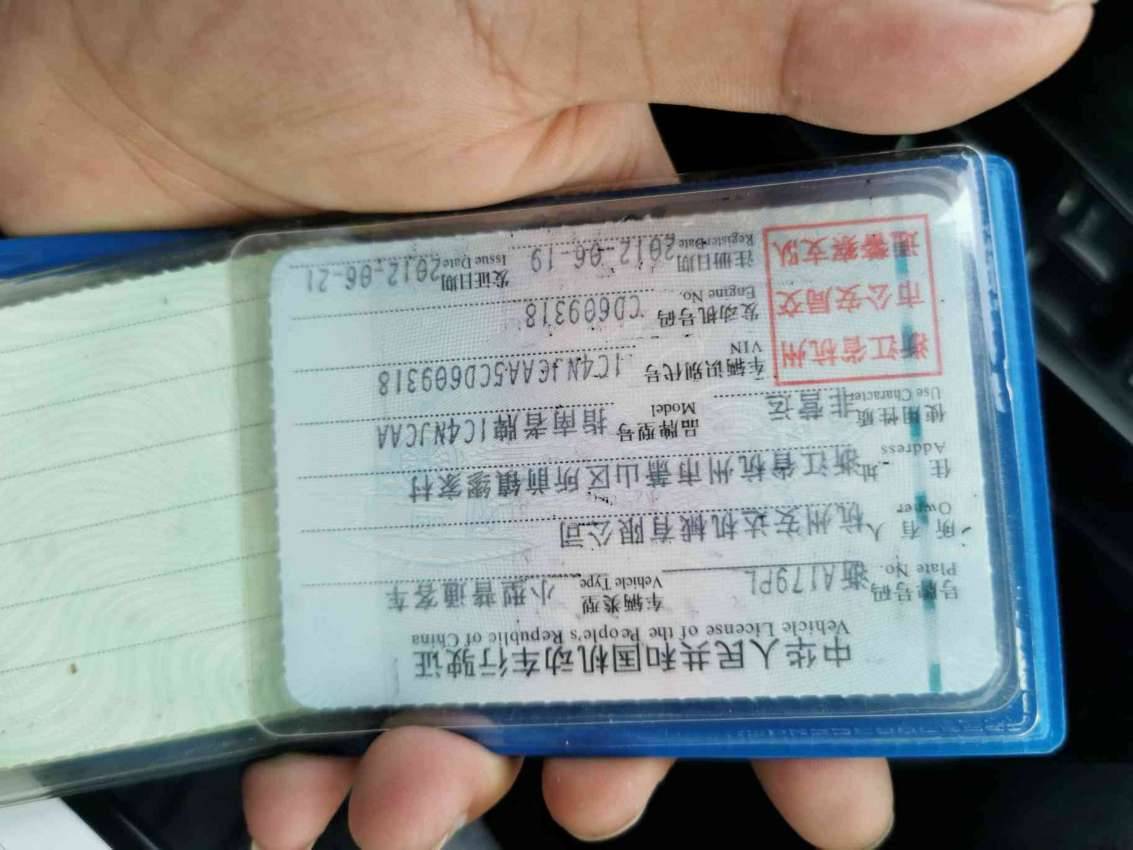 中华人民共和国机动车行驶证
Vehicle License of the People's Republic of China
号牌号码 浙A179PL 车辆类型 小型普通客车
Plate No. Vehicle Type
所有人 杭州安达机械有限公司
Owner
住址 浙江省杭州市萧山区所前镇缪家村
Address
使用性质 非营运 品牌型号 指南者牌1C4NJCAA
Use Character Model
浙江省杭州
市公安局交
通警察支队
车辆识别代号 1C4NJCAA5CD609318
VIN
发动机号码 CD609318
Engine No.
注册日期 2012-06-19 发证日期 2012-06-21
Register Date Issue Date